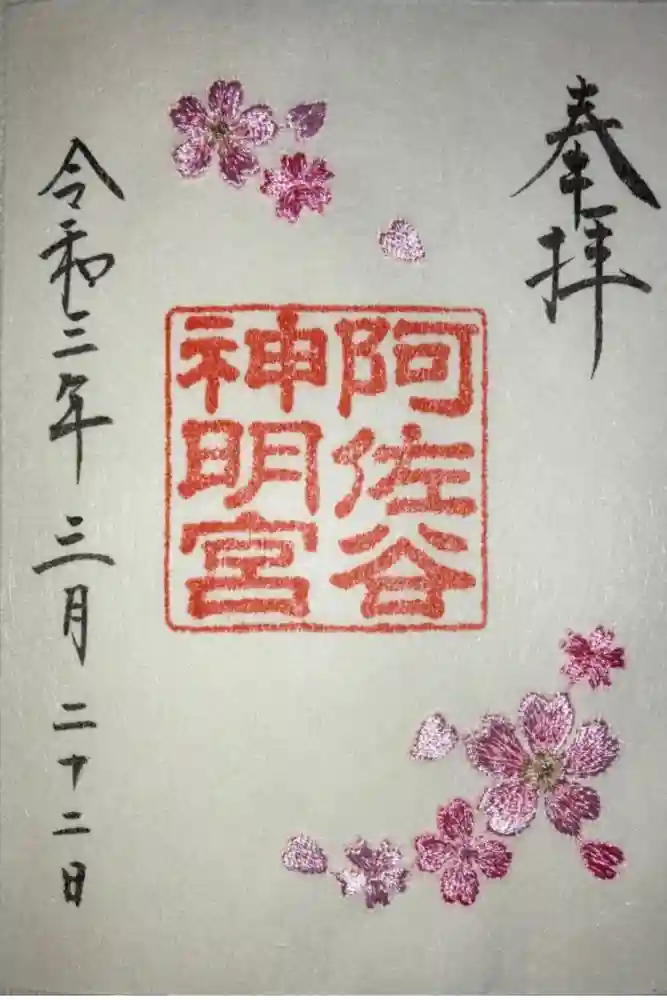 奉拝
阿佐谷
神明宮
令和三年三月二十二日